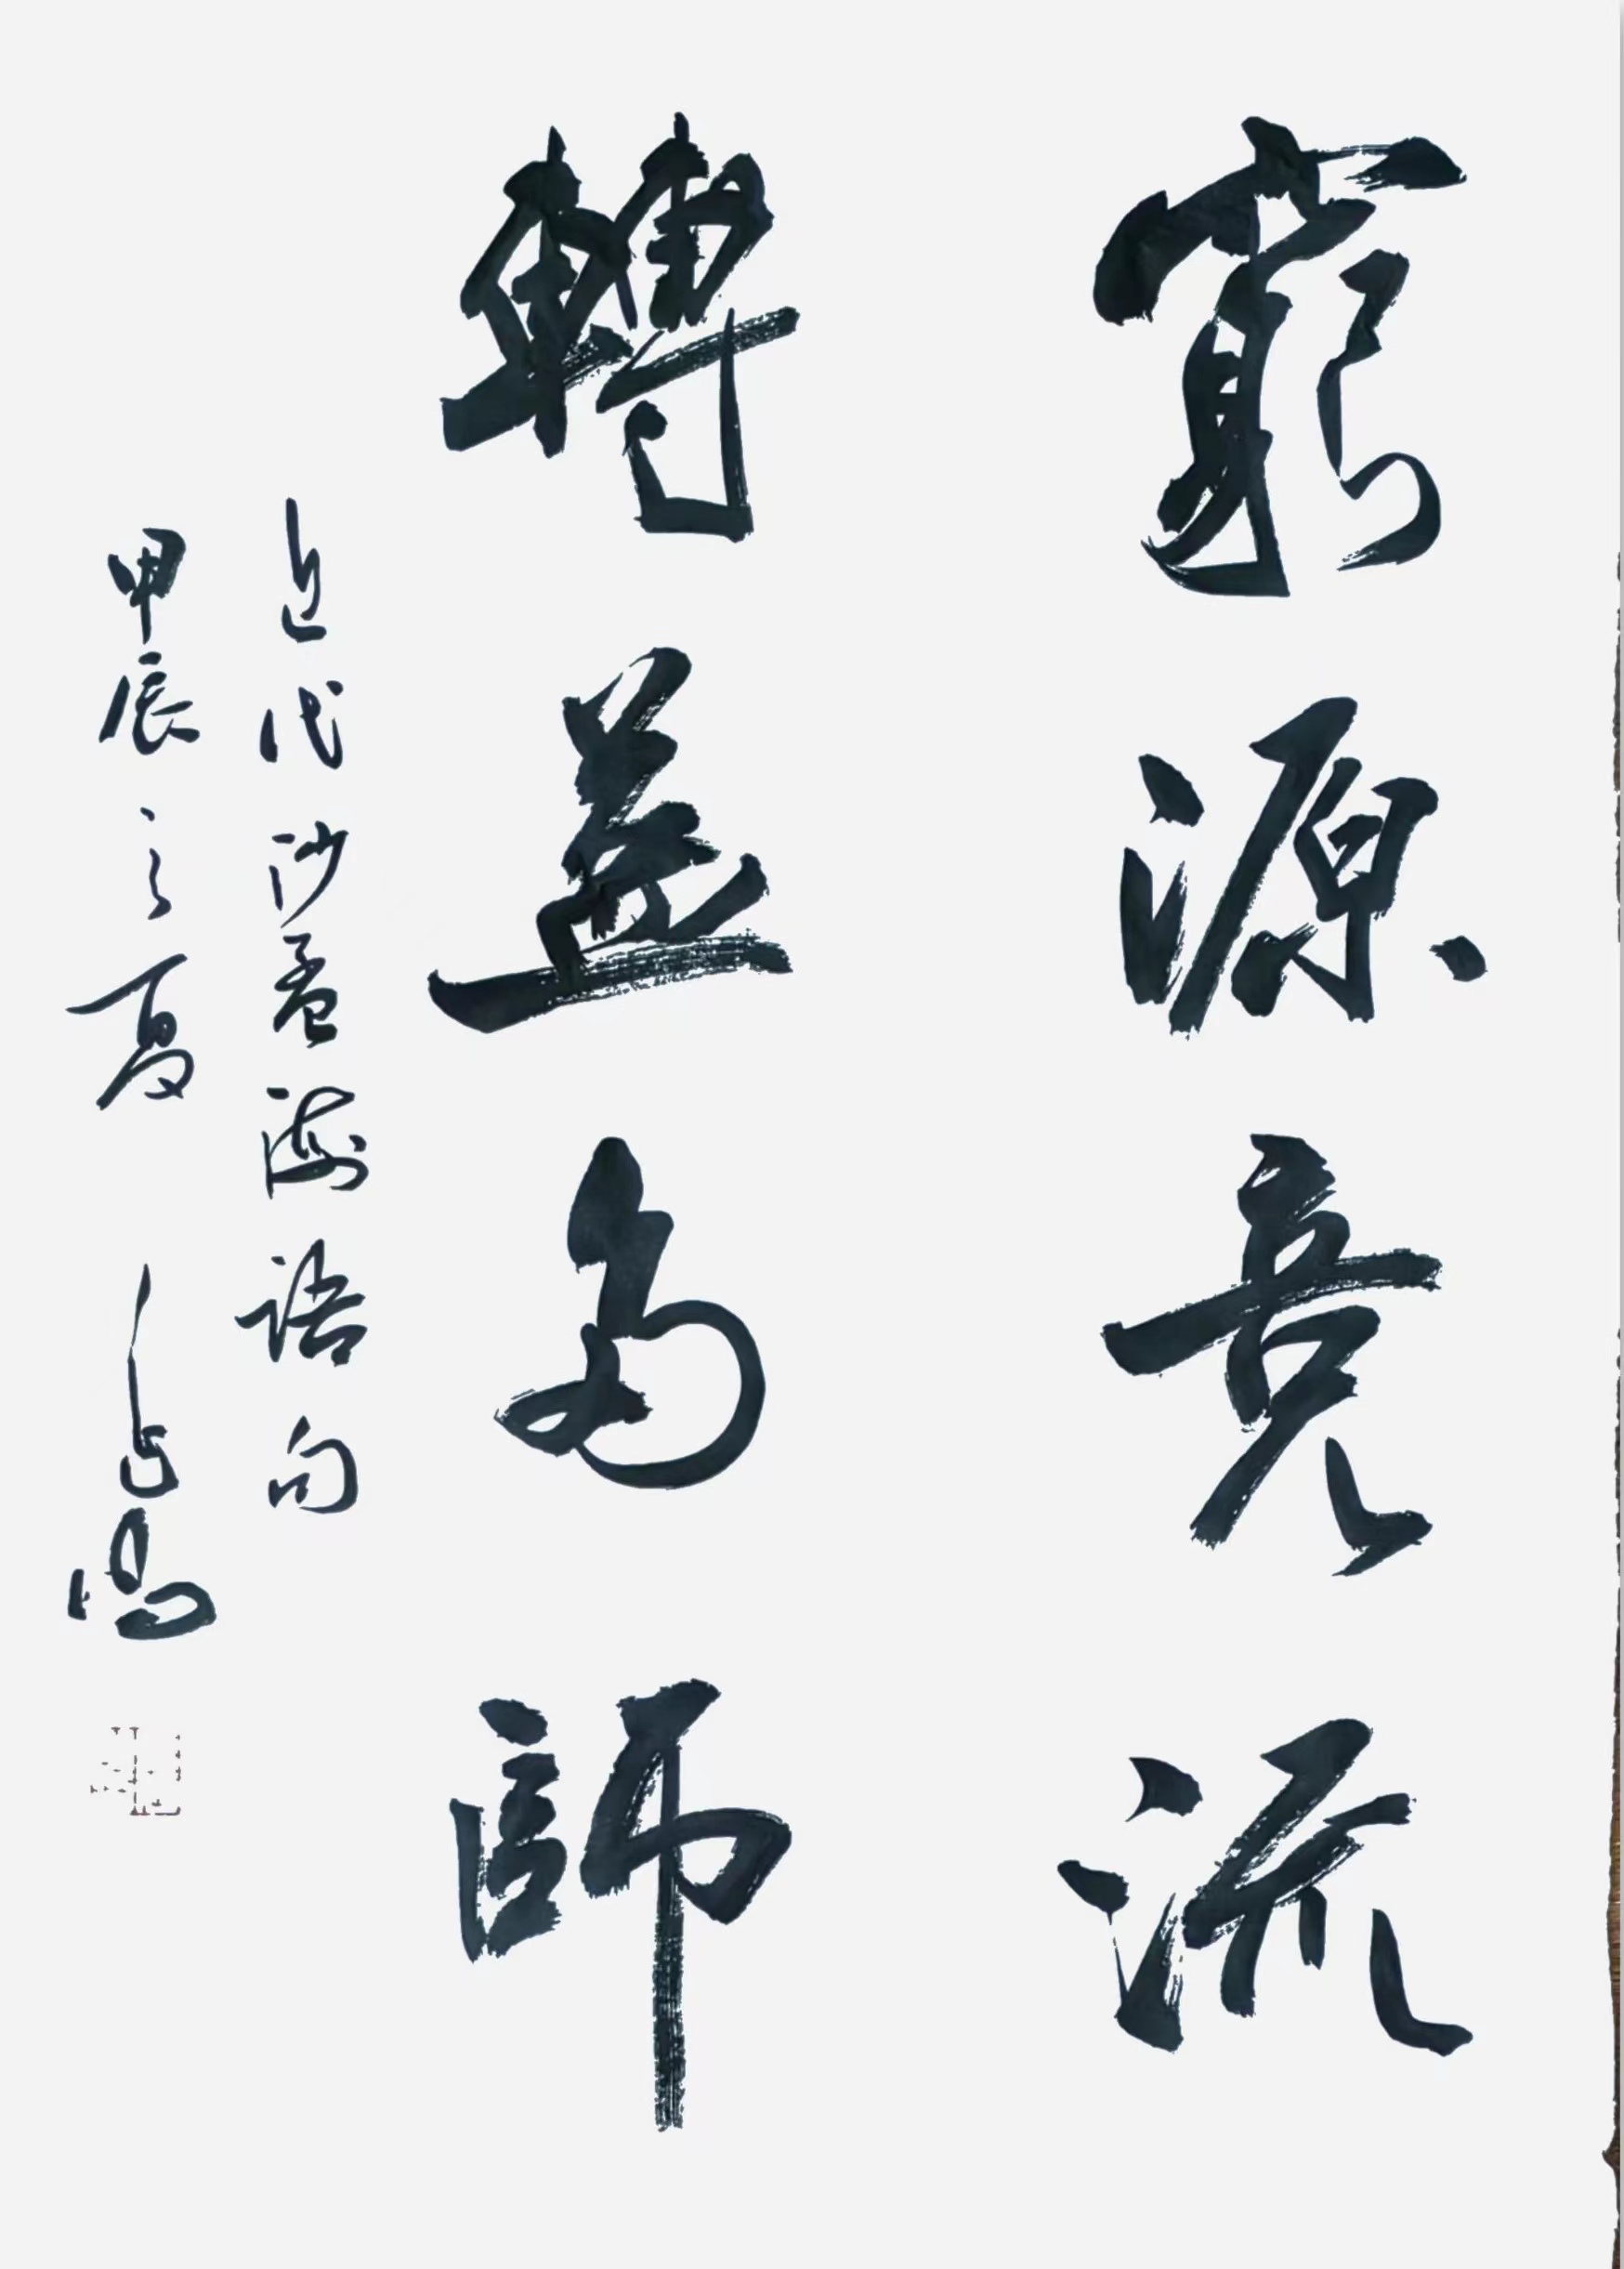 窮源竟流
轉益多師
近代沙孟海语句
甲辰之夏